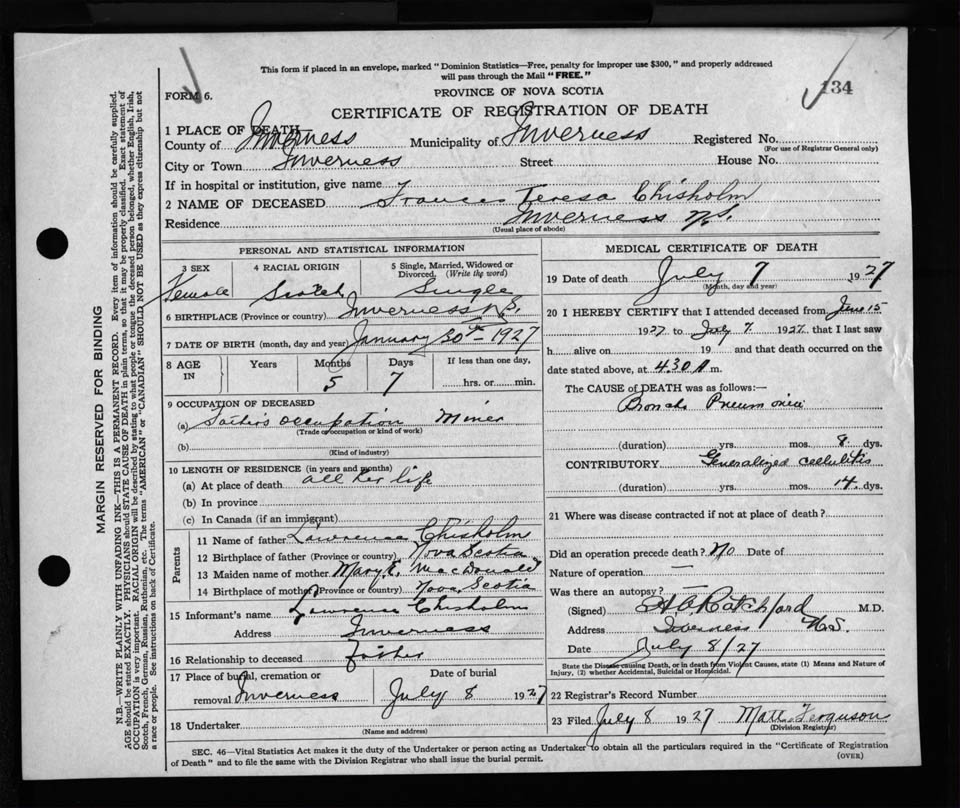 This form if placed in an envelope, marked "Dominion Statistics—Free, penalty for improper use $300," and properly addressed
will pass through the Mail "FREE."
134
FORM 6.
PROVINCE OF NOVA SCOTIA
CERTIFICATE OF REGISTRATION OF DEATH
1 PLACE OF DEATH
County of Inverness Municipality of Inverness Registered No.
(For use of Registrar General only)
City or Town Inverness Street House No.
If in hospital or institution, give name
2 NAME OF DECEASED Frances Teresa Chisholm
Residence Inverness N.S.
(Usual place of abode)
PERSONAL AND STATISTICAL INFORMATION
3 SEX 4 RACIAL ORIGIN 5 Single, Married, Widowed or
Divorced. (Write the word)
Female Scotch Single
6 BIRTHPLACE (Province or country) Inverness N.S.
7 DATE OF BIRTH (month, day and year) January 30th - 1927
8 AGE Years Months Days If less than one day,
IN 5 7 hrs. or min.
9 OCCUPATION OF DECEASED
(a) Father's occupation Miner
(Trade or occupation or kind of work)
(b)
(Kind of industry)
10 LENGTH OF RESIDENCE (in years and months)
(a) At place of death all her life
(b) In province
(c) In Canada (if an immigrant)
Parents
11 Name of father Lawrence Chisholm
12 Birthplace of father (Province or country) Nova Scotia
13 Maiden name of mother Mary E. MacDonald
14 Birthplace of mother (Province or country) Nova Scotia
15 Informant's name Lawrence Chisholm
Address Inverness
16 Relationship to deceased Father
17 Place of burial, cremation or Date of burial
removal Inverness July 8 1927
18 Undertaker
(Name and address)
MEDICAL CERTIFICATE OF DEATH
19 Date of death July 7 1927
(Month, day and year)
20 I HEREBY CERTIFY that I attended deceased from June 15
1927 to July 7 1927, that I last saw
h alive on 19 and that death occurred on the
date stated above, at 4.30 A m.
The CAUSE of DEATH was as follows:—
Broncho Pneumonia
(duration) yrs. mos. 8 dys.
CONTRIBUTORY Generalized cellulitis
(duration) yrs. mos. 14 dys.
21 Where was disease contracted if not at place of death?
Did an operation precede death? No Date of
Nature of operation —
Was there an autopsy?
(Signed) H.O. Ratchford M.D.
Address Inverness N.S.
Date July 8/27
State the Disease causing Death, or in death from Violent Causes, state (1) Means and Nature of
Injury, (2) whether Accidental, Suicidal or Homicidal.
22 Registrar's Record Number
23 Filed July 8 1927 Matt. Ferguson
(Division Registrar)
SEC. 46—Vital Statistics Act makes it the duty of the Undertaker or person acting as Undertaker to obtain all the particulars required in the "Certificate of Registration
of Death" and to file the same with the Division Registrar who shall issue the burial permit.
(OVER)
MARGIN RESERVED FOR BINDING
N.B.—WRITE PLAINLY WITH UNFADING INK—THIS IS A PERMANENT RECORD. Every item of information should be carefully supplied.
AGE should be stated EXACTLY. PHYSICIANS should STATE CAUSE OF DEATH in plain terms, so that it may be properly classified. Exact statement of
OCCUPATION is very important. RACIAL ORIGIN will be described by stating to what people or tongue the deceased person belonged, whether English, Irish,
Scotch, French, German, Russian, Ruthenian, etc. The terms "AMERICAN" or "CANADIAN" SHOULD NOT BE USED as they express citizenship but not
a race or people. See instructions on back of Certificate.